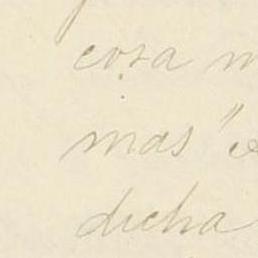 cosa
mas"
dicha